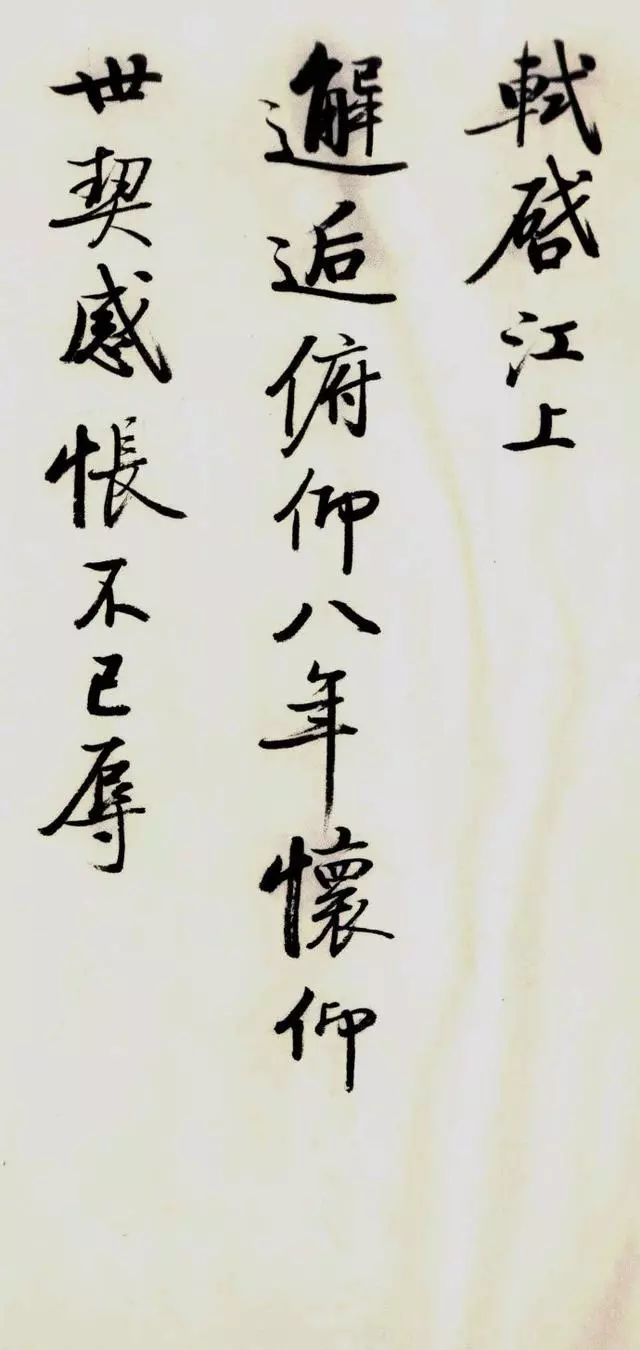 軾啓江上
邂逅俯仰八年懷仰
世契感悵不已辱